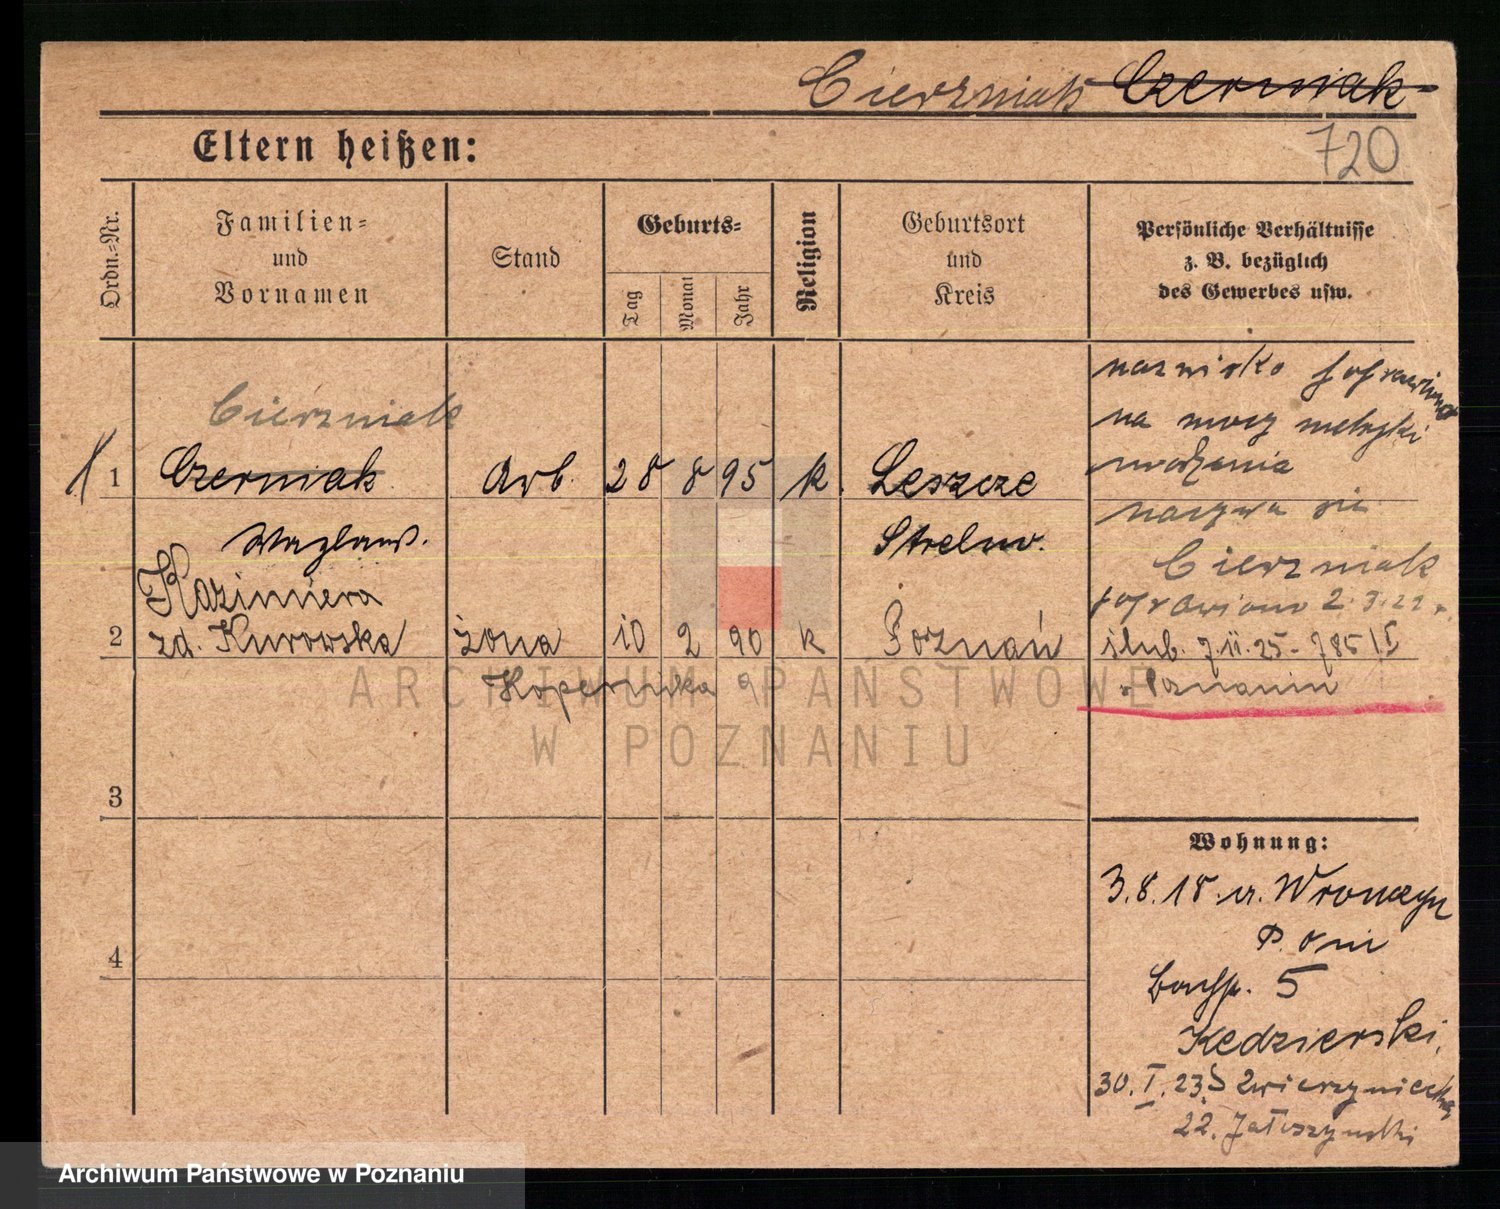 Cierzniak Czerniak
Eltern heißen:
720
Ordn.-Nr.
Familien-
und
Vornamen
Stand
Geburts-
Tag
Monat
Jahr
Religion
Geburtsort
und
Kreis
Persönliche Verhältnisse
z. B. bezüglich
des Gewerbes usw.
Cierzniak
1 Czerniak Arb. 28 8 95 k. Leszcze
Strelno.
Kazimiera
2 zd. Kurowska żona 10 2 90 k Poznań
Kopernika 9
nazwisko poprawiono
na mocy metryki
urodzenia
nazywa się
Cierzniak
poprawiono 2.3.22.
ślub. 7.II.25 - 785/I
Poznaniu
3
4
Wohnung:
3.8.18. v.
5
Kedzierski,
30.I.23. Zwierzyniecka
22.
ARCHIWUM PAŃSTWOWE
W POZNANIU
Archiwum Państwowe w Poznaniu